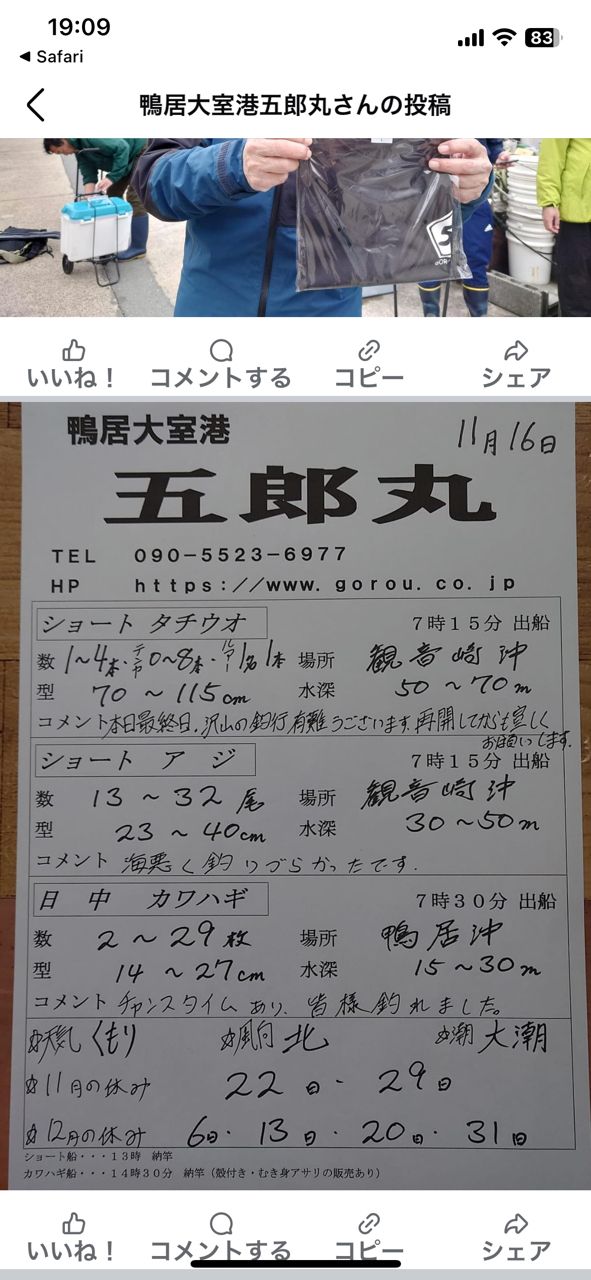 19:09
83
◀ Safari
鴨居大室港五郎丸さんの投稿
5
いいね！ コメントする コピー シェア
鴨居大室港
11月16日
五郎丸
TEL 090-5523-6977
HP https://www.gorou.co.jp
ショート タチウオ 7時15分 出船
数 1～4本・テンヤ0～8本・ルアー1名1本 場所 観音崎沖
型 70～115cm 水深 50～70m
コメント 本日最終日、沢山の釣行有難うございます。再開してからも宜しく
お願いします。
ショート アジ 7時15分 出船
数 13～32尾 場所 観音崎沖
型 23～40cm 水深 30～50m
コメント 海悪く釣りづらかったです.
日中 カワハギ 7時30分 出船
数 2～29枚 場所 鴨居沖
型 14～27cm 水深 15～30m
コメント チャンスタイムあり、皆様釣れました。
☆天気 くもり ☆風向 北 ☆潮 大潮
☆11月の休み 22日・29日
☆12月の休み 6日・13日・20日・31日
ショート船・・・13時 納竿
カワハギ船・・・14時30分 納竿（殻付き・むき身アサリの販売あり）
いいね！ コメントする コピー シェア